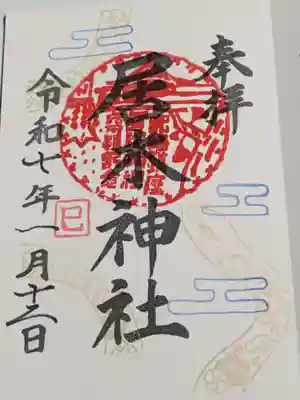 奉拝
居木神社
令和七年一月十三日
巳